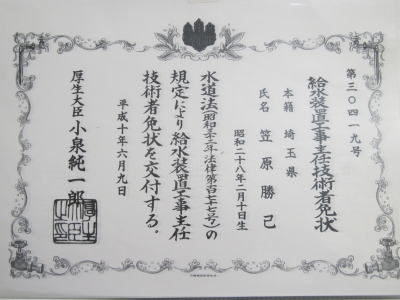 第三〇四一九号
給水装置工事主任技術者免状
本籍 埼玉県
氏名 笠原勝己
昭和二十八年二月十日生
水道法(昭和三十二年法律第百七十七号)の
規定により給水装置工事主任
技術者免状を交付する。
平成十年六月九日
厚生大臣 小泉純一郎